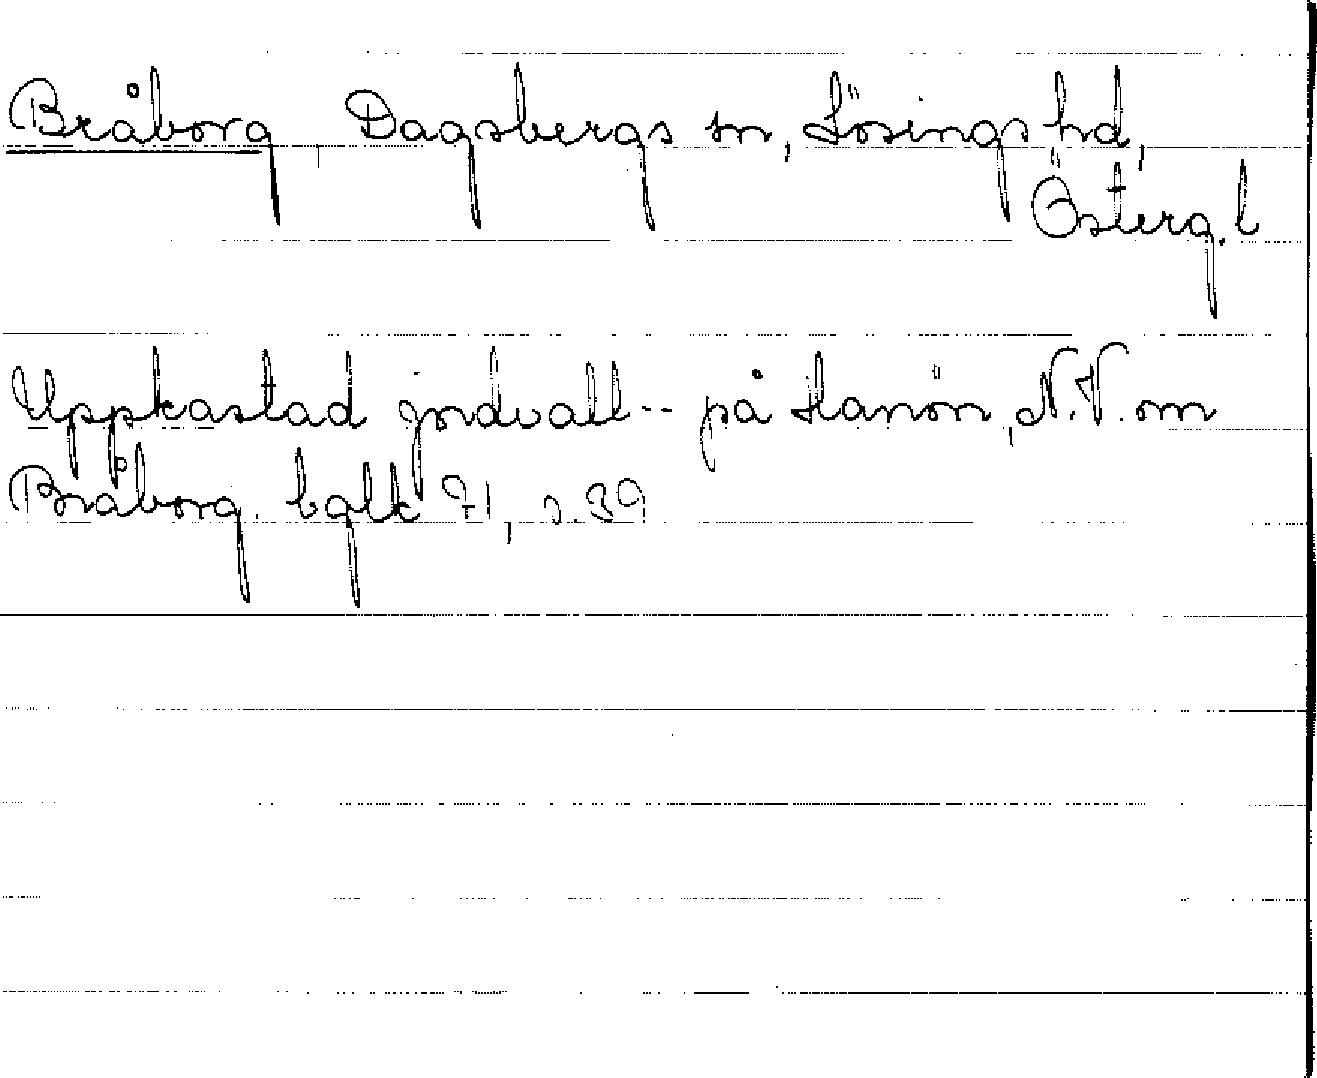 Bråborg, Dagsbergs sn, Lösings hd,
Österg. l
Uppkastad jordvall -- på Hanön, N.V. om
Bråborg. bglk 71, s. 39